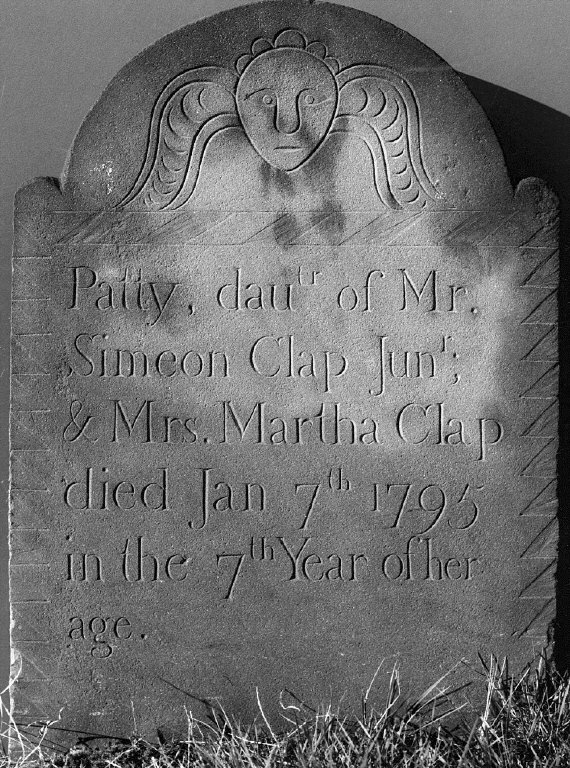 Patty, dau^tr of Mr.
Simeon Clap Jun^r;
& Mrs. Martha Clap
died Jan 7^th 1795
in the 7^th Year of her
age.